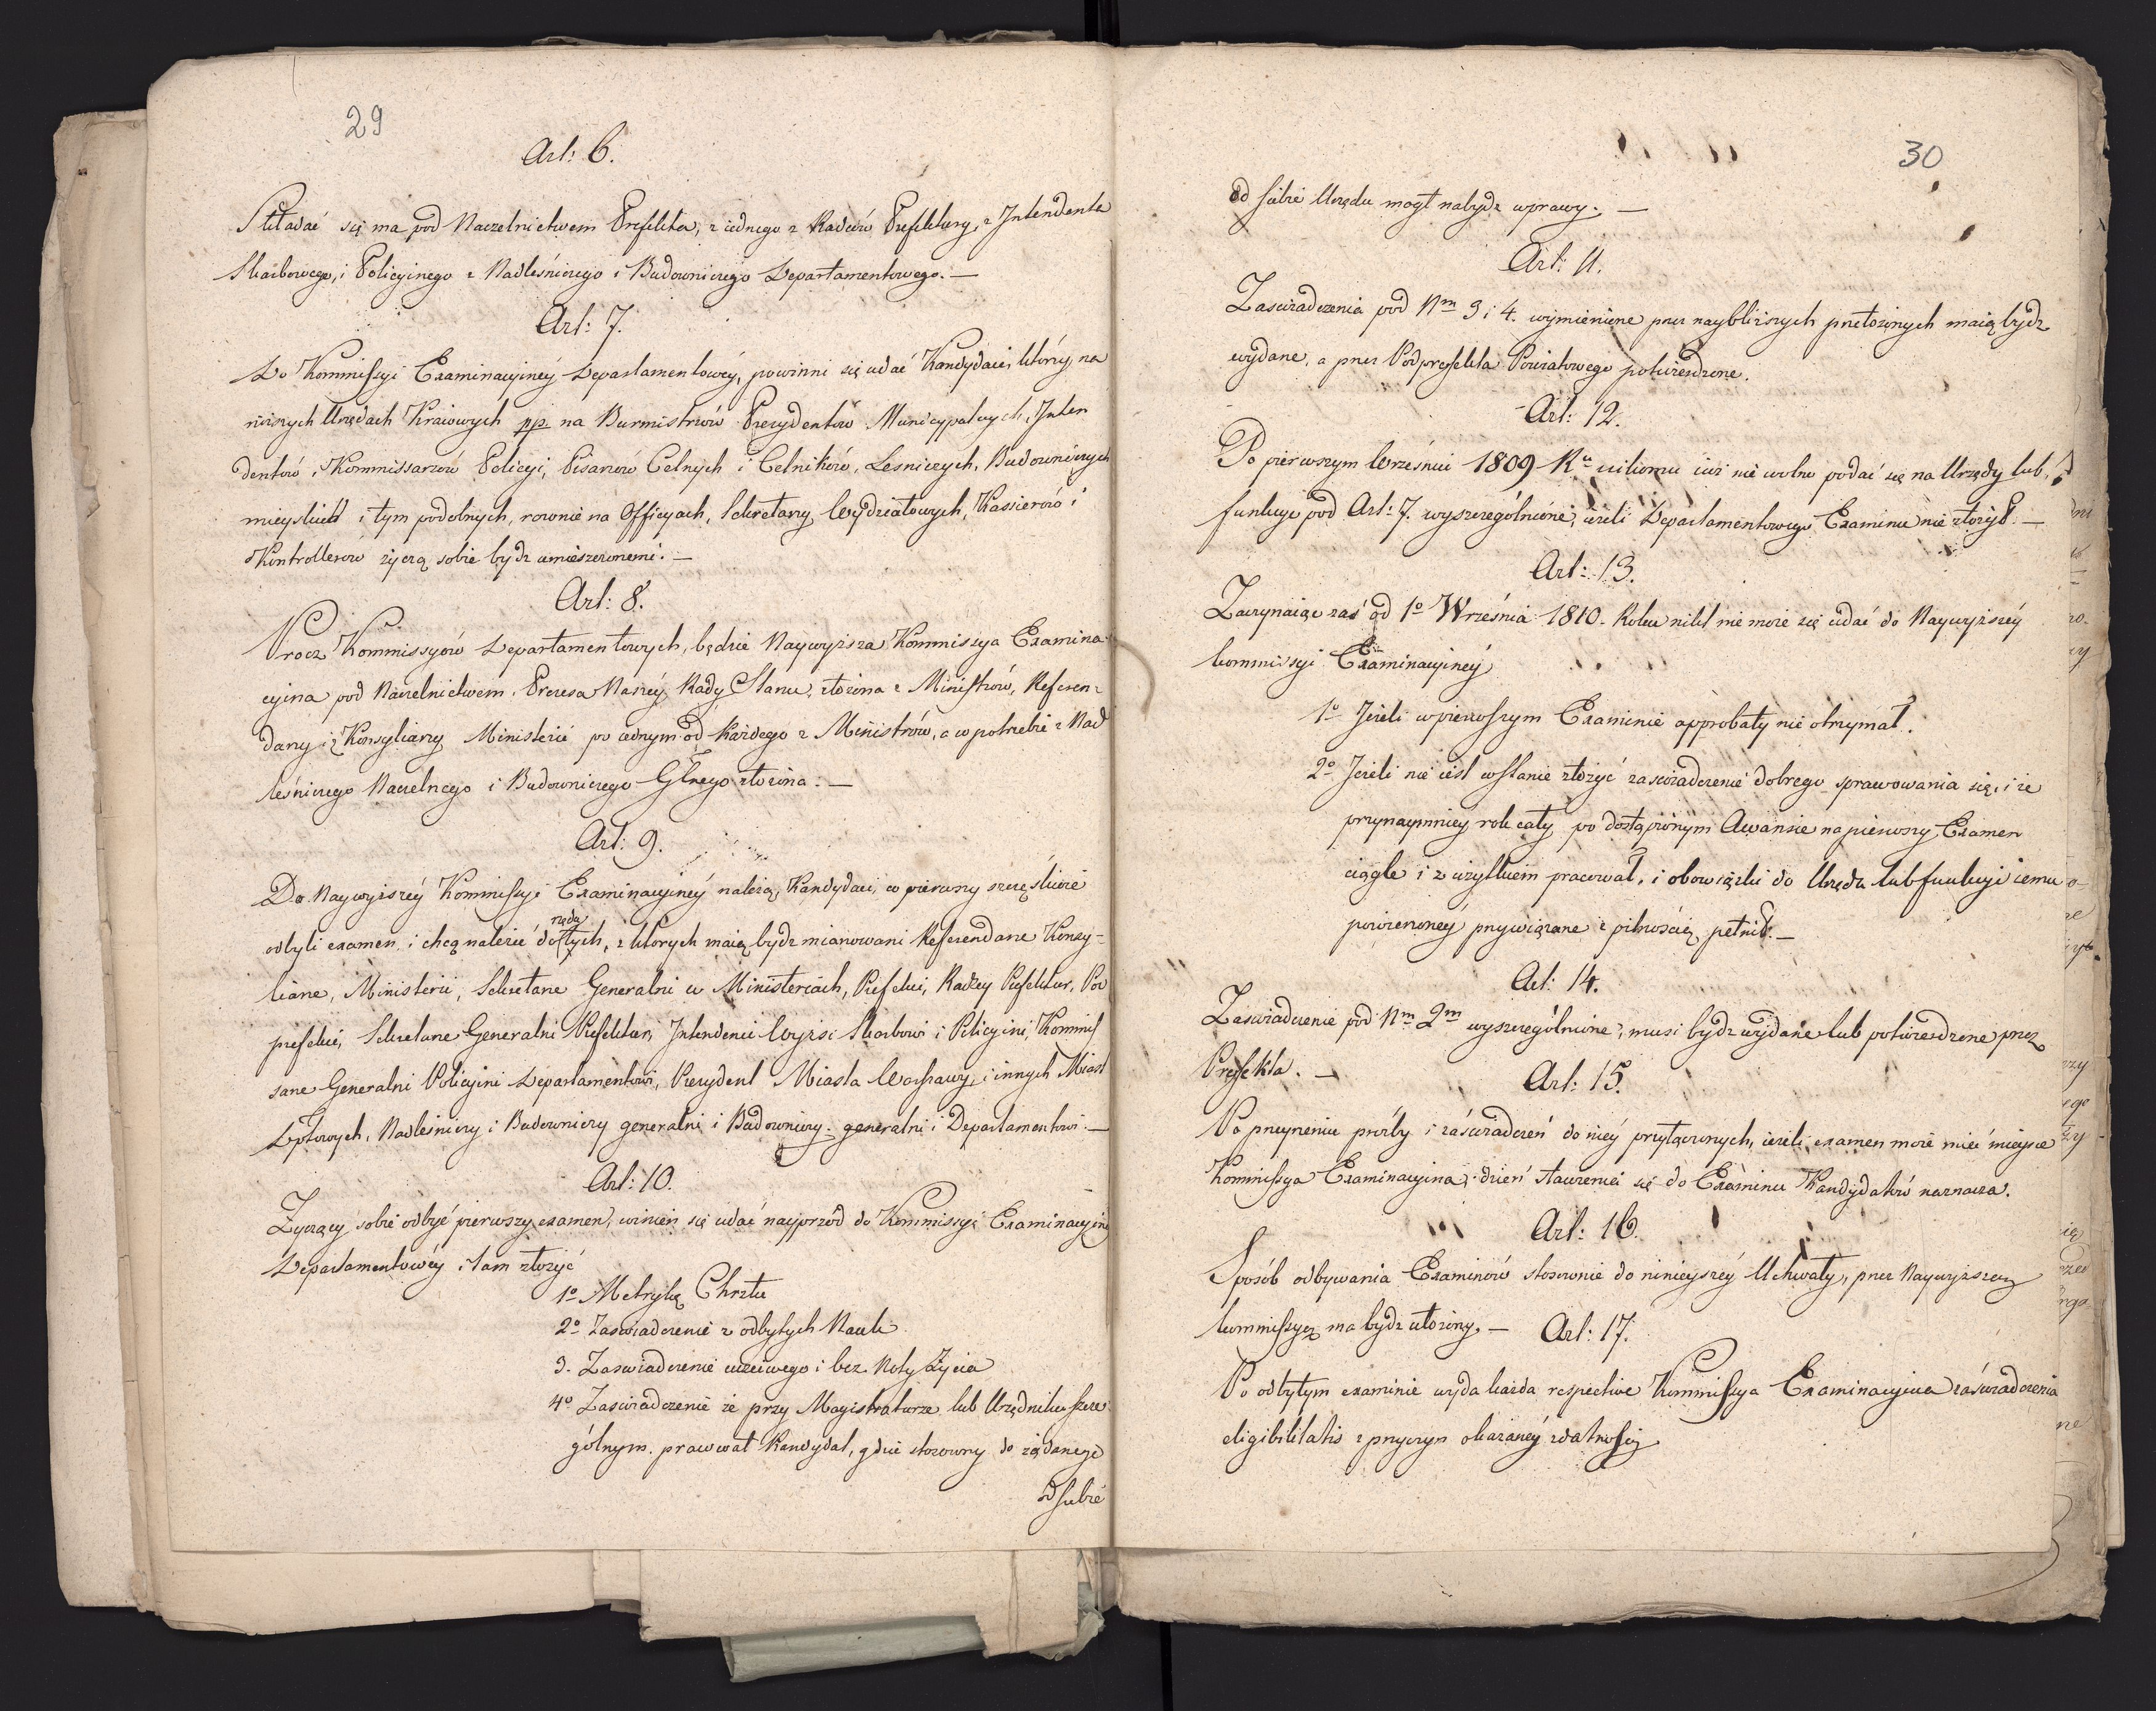 29
Art: 6.
Składać się ma pod Naczelnictwem Prefekta, z iednego z Radców Prefektury, z Intendenta
Skarbowego, i Policyinego z Nadleśniczego i Budowniczego Departamentowego. —
Art: 7.
Do Kommissyi Examinacyinéy Departamentowéy, powinni się udać Kandydaci, którzy na
niższych Urzędach Kraiowych pp. na Burmistrzów Prezydentów Municypalnych, Inten
dentów, Kommissarzów Policyi, Pisarzów Celnych i Celników, Leśniczych, Budowniczych
mieyskich i tym podobnych, rownie na Officyach, Sekretarzy Wydziałowych, Kassierów i
Kontrollerow życzą sobie bydz umieszczonemi. —
Art: 8.
Procz Kommissyów Departamentowych, będzie Naywyższa Kommissya Examina
cyina pod Naczelnictwem Prezesa Naszéy Rady Stanu, złożona z Ministrów, Referen=
darzy i Konsyliarzy Ministerii po iednym od każdego z Ministrów, a w potrzebie z Nad
leśniczego Naczelnego i Budowniczego Głnego złożona. —
Art: 9.
Do Naywyższéy Kommissyi Examinacyinéy należą, Kandydaci, co pierwszy szczęśliwie
rzędu
odbyli examen i chcą należeć do tych, z których maią bydz mianowani Referendarze Konsy=
liarze, Ministerii, Sekretarze Generalni w Ministeriach, Prefekci, Radzcy Prefektur, Pod
prefekci, Sekretarze Generalni Prefektur, Intendenci Wyżsi Skarbowi i Policyini, Kommis
sarze Generalni Policyini Departamentowi, Prezydent Miasta Warszawy, i innych Miast
Dptowych, Nadleśniczy i Budowniczy generalni i Budowniczy generalni i Departamentowi. —
Art: 10.
Życzący sobie odbyć pierwszy examen, winien się udać nayprzod do Kommissyi Examinacyiné
Departamentowéy i tam złożyć
1º Metrykę Chrztu
2º Zaswiadczenie z odbytych Nauk
3. Zaswiadczenie uczciwego i bez Noty Życia
4º Zaswiadczenie że przy Magistraturze lub Urzędniku szcze
gólnym pracował Kandydat, gdzie stosowny do żądanego
od siebie
30
od siebie Urzędu mogł nabydz wprawy. —
Art: 11.
Zaswiadczenia pod Nm 3 i 4. wymienione przez naybliższych przełożonych maią bydz
wydane, a przez Podprefekta Powiatowego potwierdzone.
Art: 12.
Po pierwszym Wrześniu 1809 Ru nikomu iuż nie wolno podać się na Urzędy lub
funkcye pod Art: 7. wyszczególnione, ieżeli Departamentowego Examinu nie złożył. —
Art: 13.
Zaczynaiąc zaś od 1º Września 1810. Roku nikt nie może się udać do Naywyższéy
kommissyi Examinacyinéy
1º Jeżeli w pierwszym Examinie approbaty nie otrzymał.
2º Jeżeli nie iest w stanie złożyć zaswiadczenie dobrego sprawowania się, i że
przynaymniey rok cały po dostąpionym Awansie na pierwszy Examen
ciągle i z użytkiem pracował, i obowiązki do Urzędu lub funkcyi iemu
powierzoney przywiązane z pilnością pełnił. —
Art: 14.
Zaswiadczenie pod Nm 2m wyszczególnione, musi bydz wydane lub potwierdzone przez
Prefekta. —
Art: 15.
Po przyieniu proźby i zaświadczeń do niéy przyłączonych, ieżeli examen może mieć mieysce
Kommissya Examinacyina, dzień stawienia się do Examinu Kandydatów naznacza.
Art: 16.
Sposób odbywania Examinów stosownie do ninieyszéy Uchwały, przez Naywyższą
kommissyą ma bydz ułożony. —
Art: 17.
Po odbytym examinie wyda każda respective Kommissya Examinacyina zaświadczenia
eligibilitatis z przyczyn okazanéy zdatności